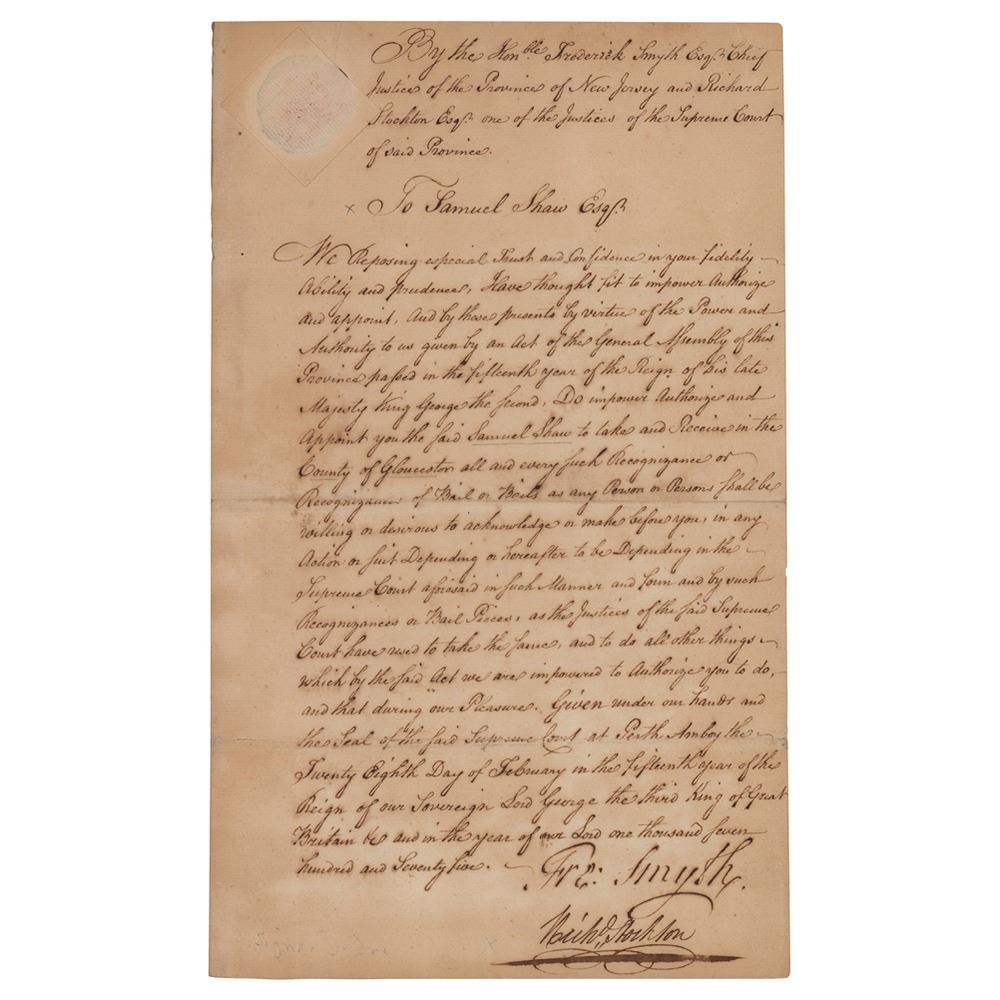 By the Hon.ble Frederick Smyth Esq.r Chief
Justice of the Province of New Jersey and Richard
Stockton Esq.r one of the Justices of the Supreme Court
of said Province.
x To Samuel Shaw Esq.r
We Reposing especial Trust and Confidence in your fidelity
Ability and prudence, Have thought fit to impower Authorize
and appoint, And by these presents by virtue of the Power and
Authority to us given by an Act of the General Assembly of this
Province passed in the fifteenth year of the Reign of his late
Majesty King George the second, Do impower Authorize and
Appoint you the said Samuel Shaw to take and Receive in the
County of Gloucester all and every such Recognizance or
Recognizances of Bail or Bails as any Person or Persons shall be
willing or desirous to acknowledge or make before you, in any
Action or suit Depending or hereafter to be Depending in the
Supreme Court aforesaid in such Manner and form and by such
Recognizances or Bail Pieces, as the Justices of the said Supreme
Court have used to take the same, and to do all other things
which by the said Act we are impowered to Authorize you to do,
and that during our Pleasure. Given under our hands and
the Seal of the said Supreme Court at Perth Amboy the
Twenty Eighth Day of February in the fifteenth Year of the
Reign of our Sovereign Lord George the third King of Great
Britain &c and in the year of our Lord one thousand seven
hundred and Seventy five.
Fre: Smyth.
Rich.d Stockton